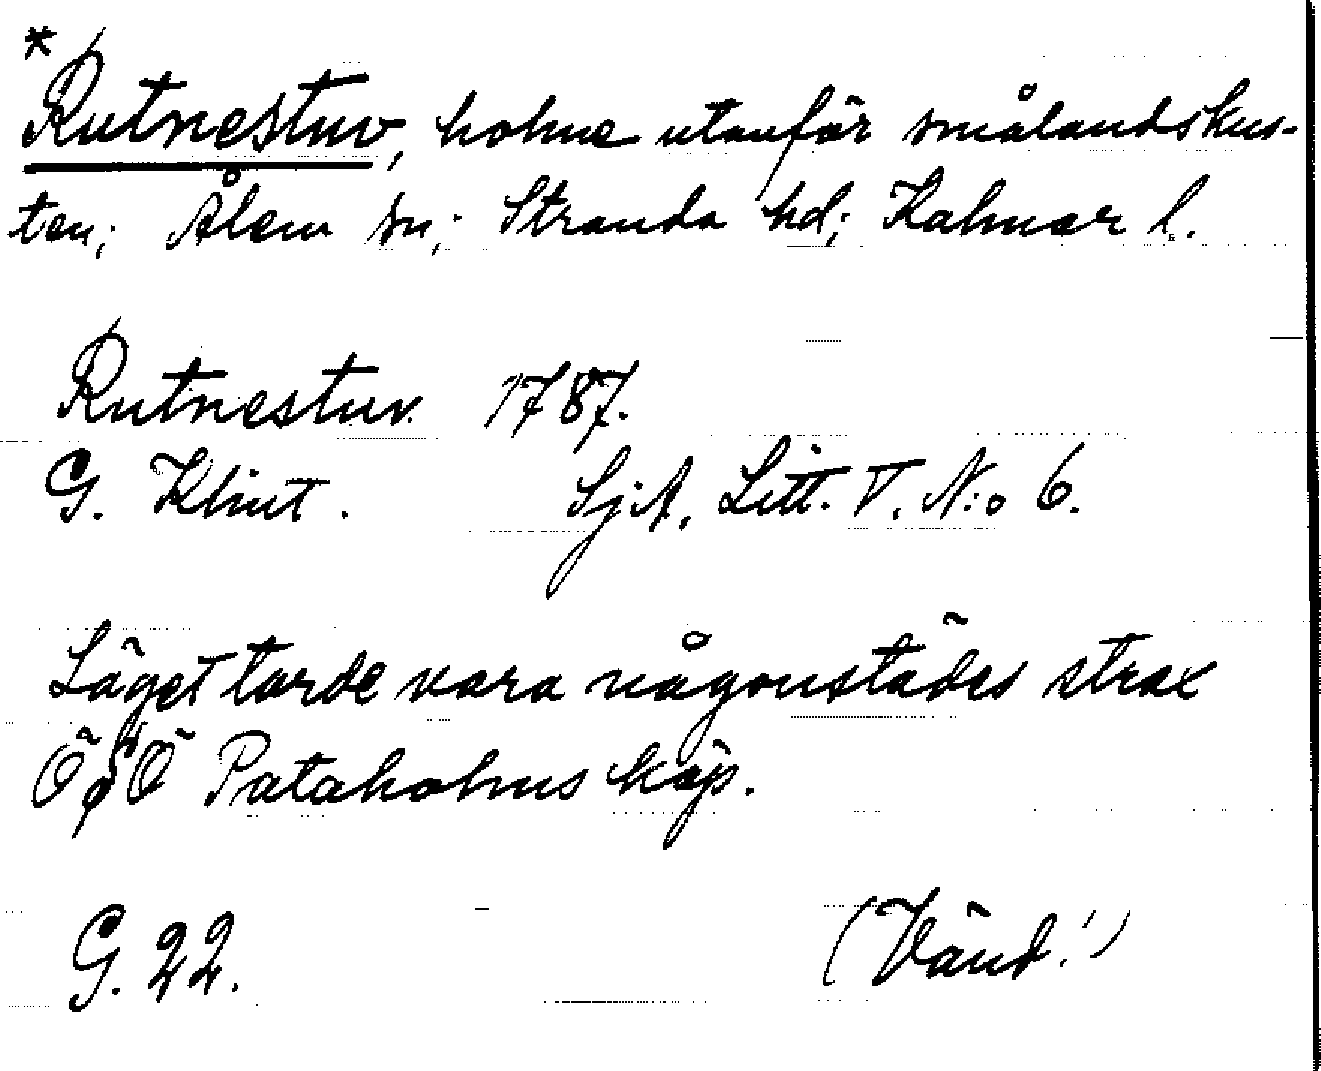 *
Rutnestuv, holme utanför smålandskus-
ten; Ålem sn; Stranda hd; Kalmar l.
Rutnestuv. 1787.
G. Klint. SjA, Litt. V. N:o 6.
Läget torde vara någonstädes strax
ÖSÖ Pataholms köp.
G. 22. (Vänd!)